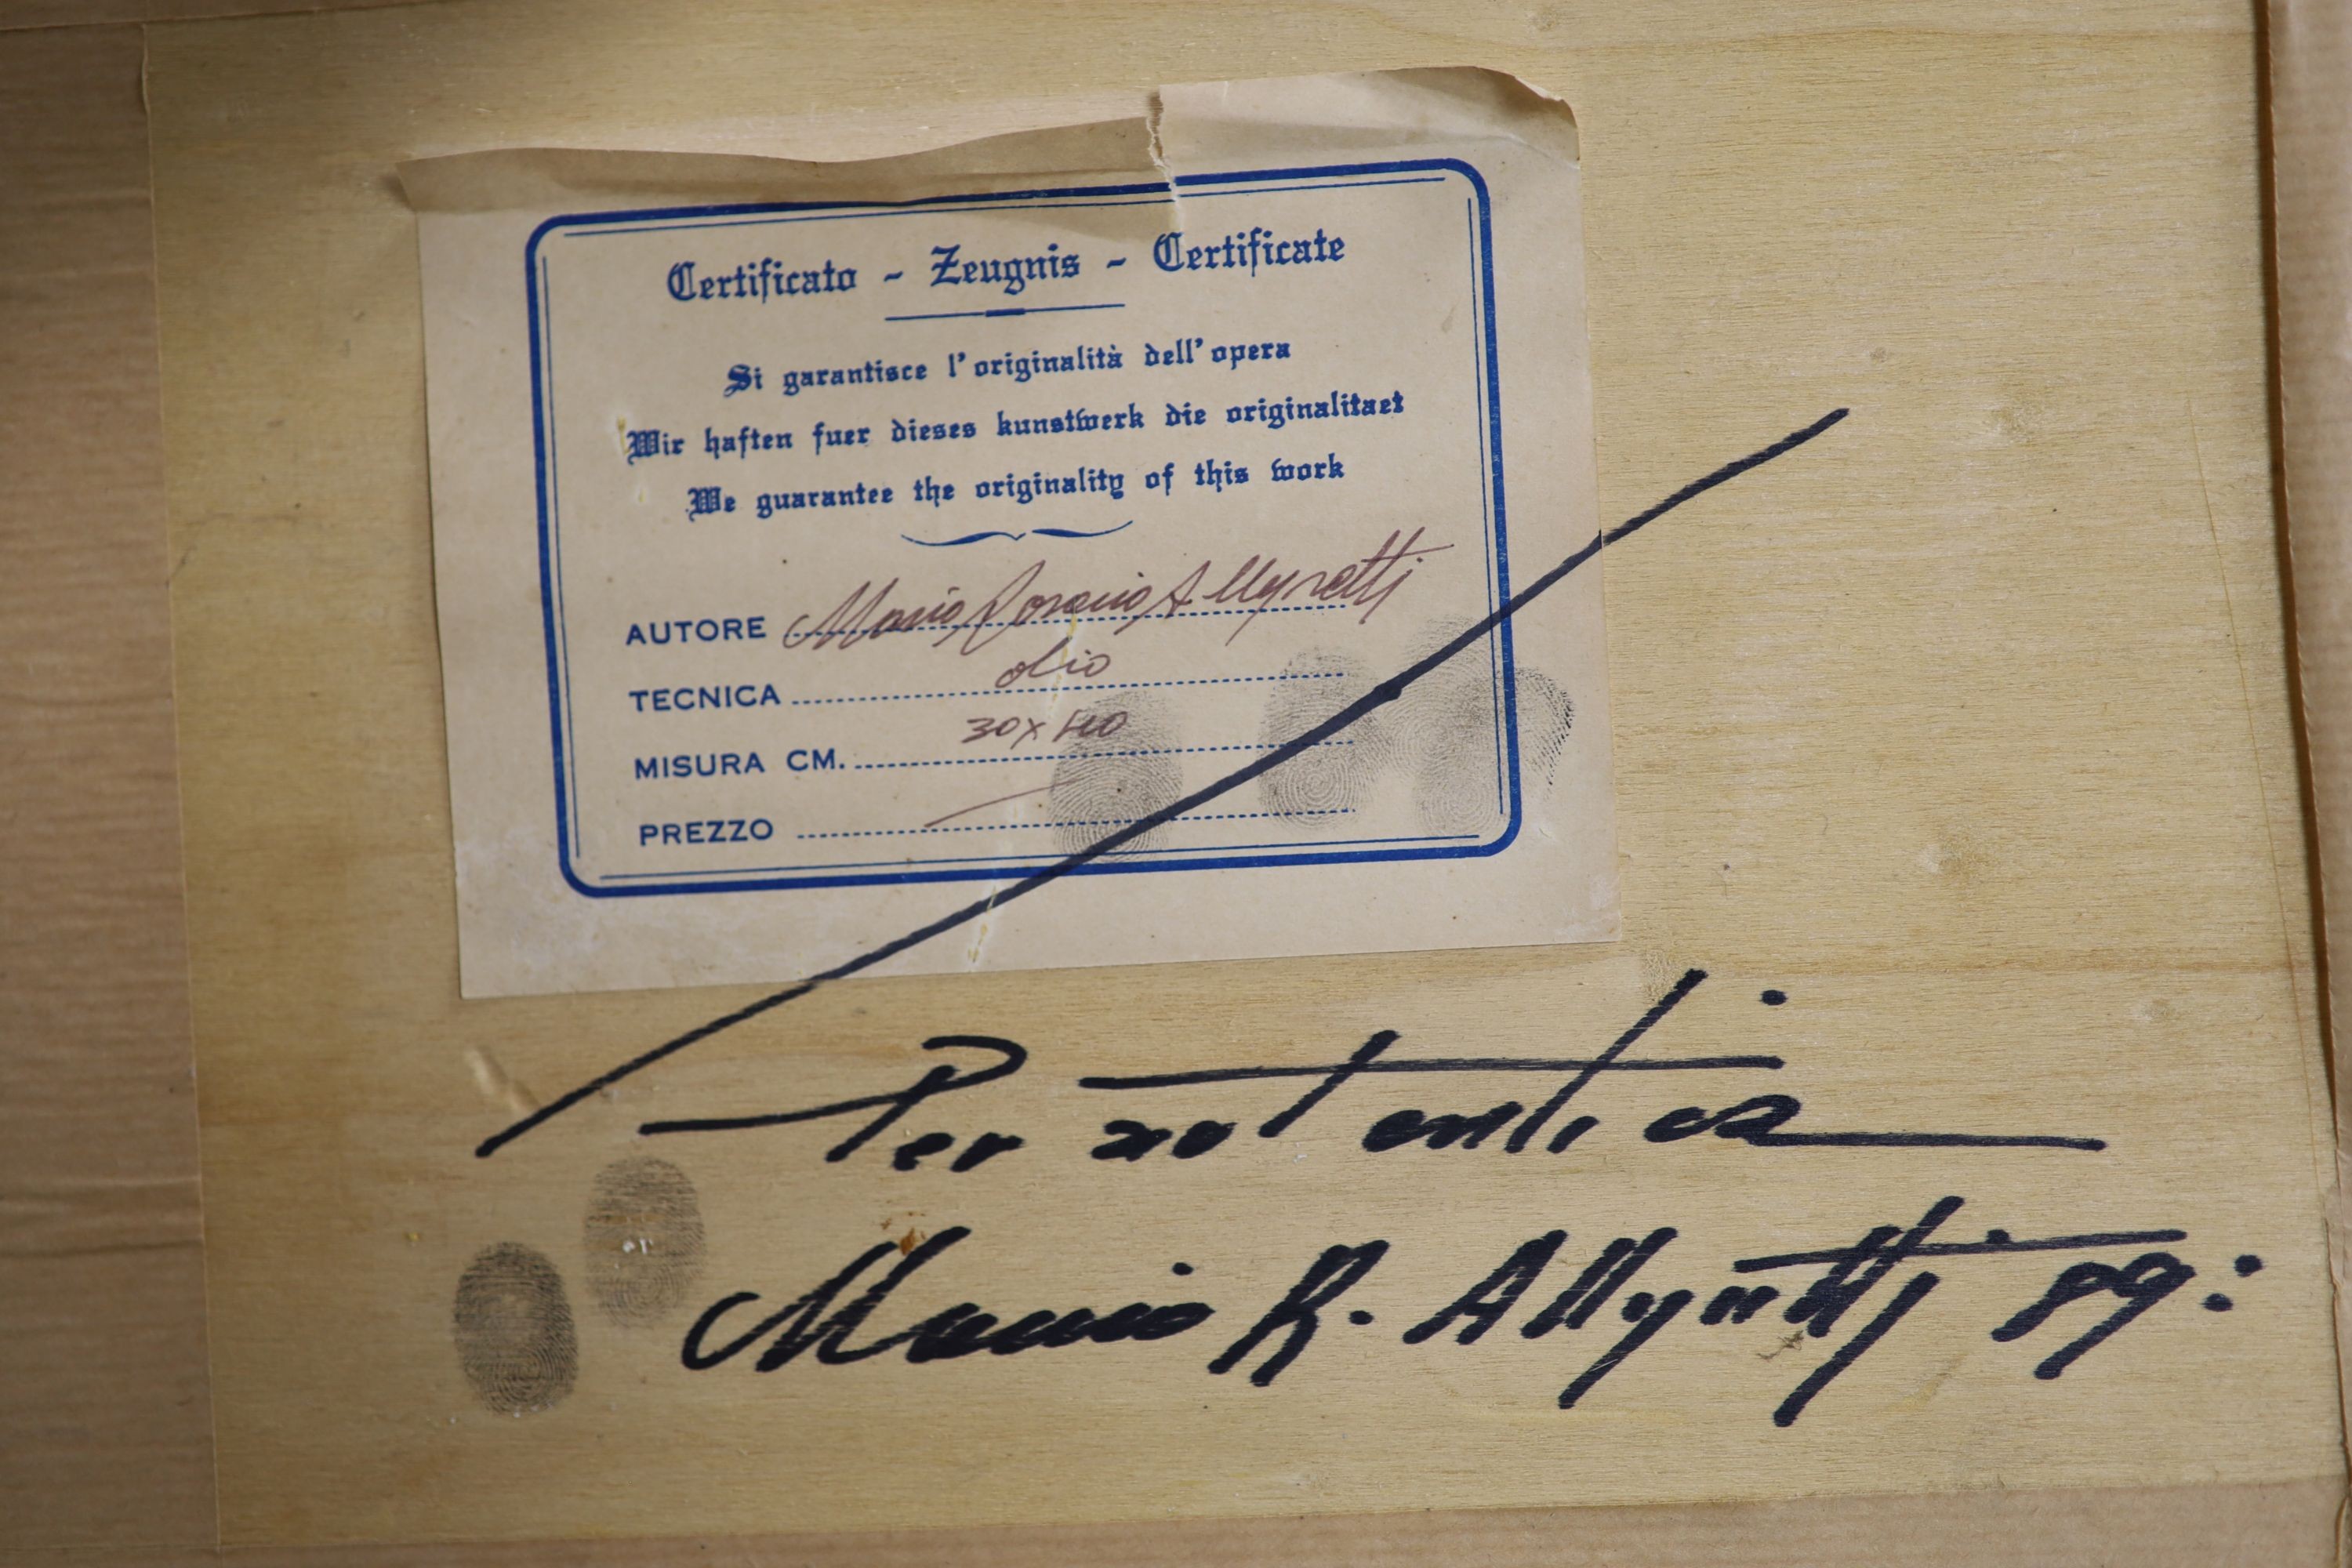 Certificato - Zeugnis - Certificate
Si garantisce l'originalità dell'opera
Wir haften fuer dieses kunstwerk die originalitaet
We guarantee the originality of this work
AUTORE Mario Rosario Allegretti
TECNICA olio
MISURA CM. 30x40
PREZZO
Per autentica
Mario R. Allegretti 89: